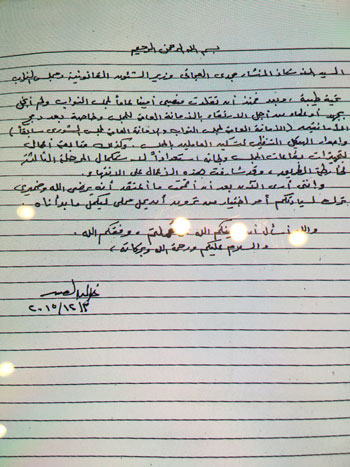 بسم الله الرحمن الرحيم
السيد المستشار مجدى العجاتى وزير الشئون القانونية ومجلس النواب
تحية طيبة، وبعد فمنذ أن تقلدت منصبى أمينا عاماً لمجلس النواب ولم أبخل
بجهد أو عطاء من أجل الارتقاء بالأمانة العامة للمجلس وخاصة بعد دمج
الأمانتين (الأمانة العامة لمجلس النواب والأمانة العامة لمجلس الشورى سابقاً)
وإعداد الهيكل التنظيمى للسادة العاملين بالمجلس، وكذلك متابعة أعمال
التجهيزات لقاعات المجلس ولجانه استعداداً لاستكمال المرحلة الثالثة
لخارطة الطريق، وقد شارفت هذه الأعمال على الانتهاء.
وإننى أرى الآن بعد أن أتممت ما أعتقد أنه يرضى الله وضميرى
ترك لسيادتكم أمر اختيار من ترونه أن يحل محلى ليكمل ما بدأناه.
والله أسأل أن الله، وفقكم الله.
والسلام عليكم ورحمة الله وبركاته،
٢٠١٥/١٢/٣